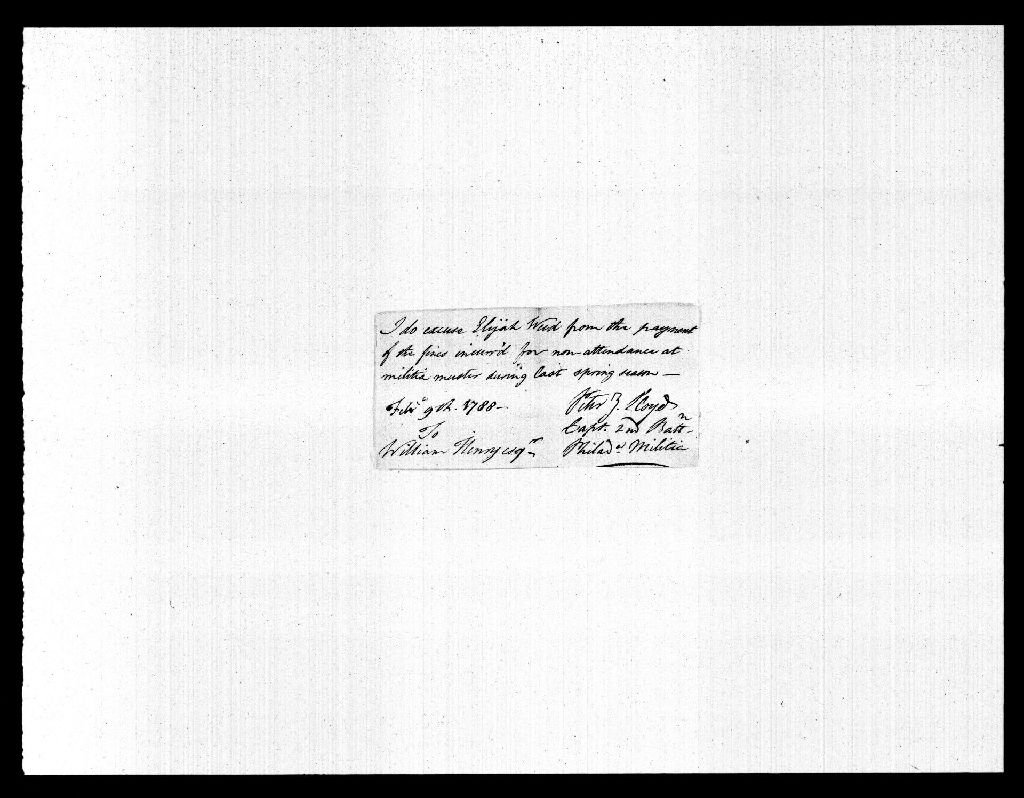 I do excuse Elijah Weed from the payment
of the fines incurr'd for non-attendance at
militia muster during last spring season —
Feb.y 9th. 1788 — Peter Z. Lloyd
To Capt. 2nd Battn
William Henry esqr Philada Militia